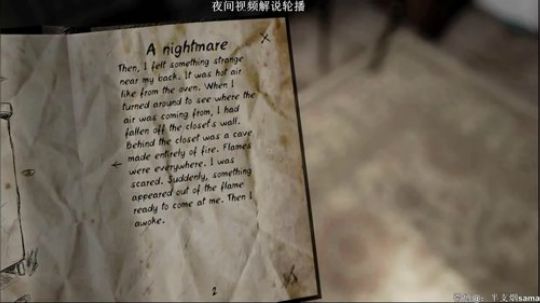 夜间视频解说轮播
A nightmare
Then, I felt something strange
near my back. It was hot air
like from the oven. When I
turned around to see where the
air was coming from, I had
fallen off the closet's wall.
Behind the closet was a cave
made entirely of fire. Flames
were everywhere. I was
scared. Suddenly, something
appeared out of the flame
ready to come at me. Then I
awoke.
2
半支烟sama